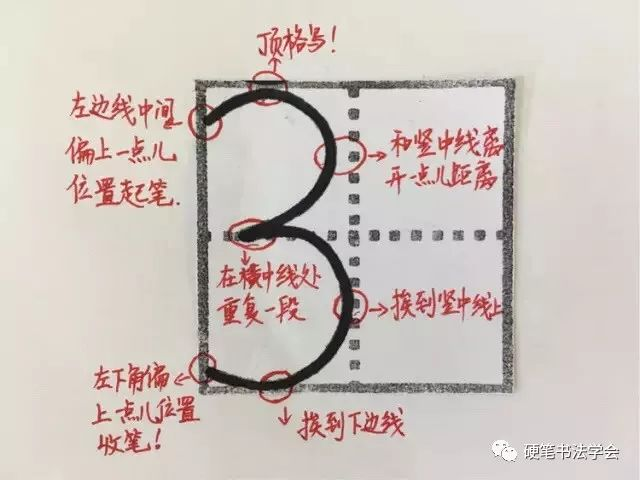 顶格写!
左边线中间
偏上一点儿
位置起笔.
和竖中线离
开一点儿距离
3
在横中线处
重复一段
挨到竖中线上
左下角偏
上一点儿位置
收笔!
挨到下边线
硬笔书法学会